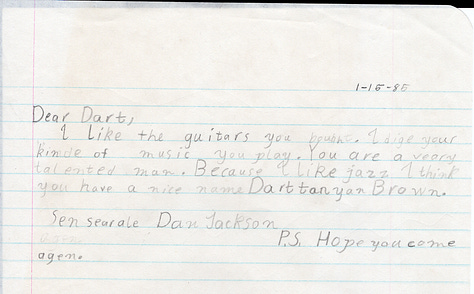 1-15-85
Dear Dart,
I like the guitars you I dige your
kinde of music you play. You are a veary
talented man. Because I like jazz I think
you have a nice name Darttanyan Brown.
Sensearale Dan Jackson
P.S. Hope you come
agen.